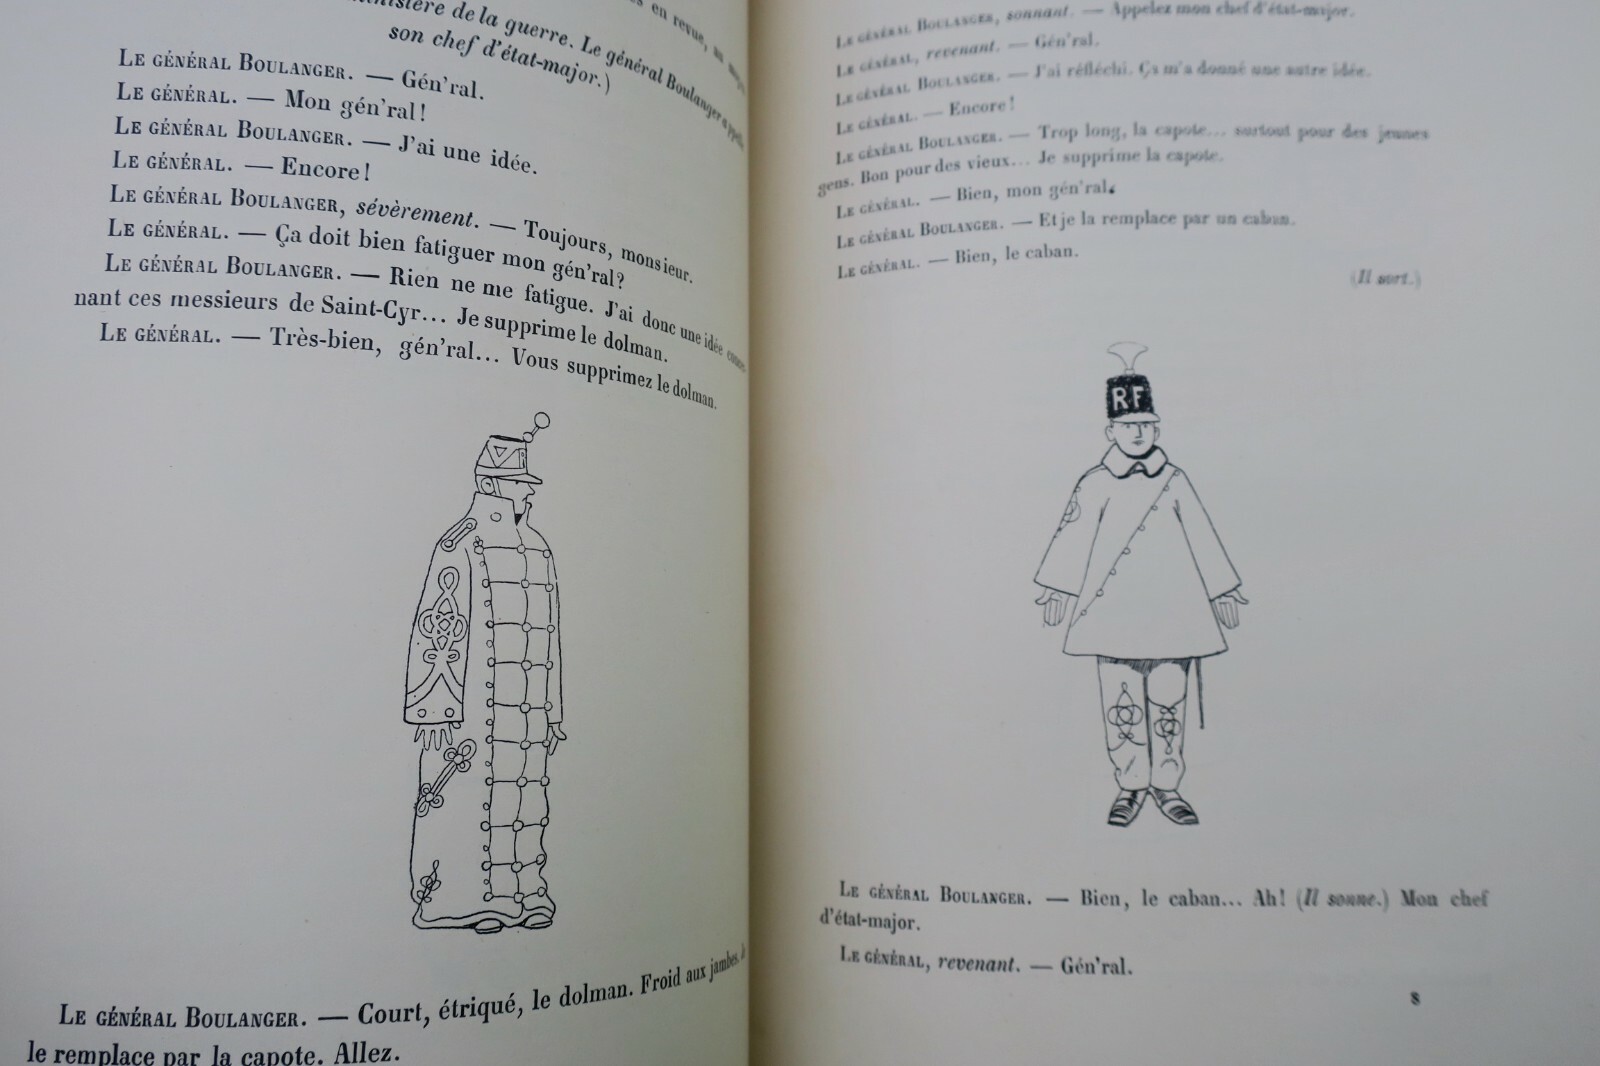 en revue, au
ministère de la guerre. Le général Boulanger appelle
son chef d'état-major.)
LE GÉNÉRAL BOULANGER. — Gén'ral.
LE GÉNÉRAL. — Mon gén'ral !
LE GÉNÉRAL BOULANGER. — J'ai une idée.
LE GÉNÉRAL. — Encore !
LE GÉNÉRAL BOULANGER, sévèrement. — Toujours, monsieur.
LE GÉNÉRAL. — Ça doit bien fatiguer mon gén'ral ?
LE GÉNÉRAL BOULANGER. — Rien ne me fatigue. J'ai donc une idée
nant ces messieurs de Saint-Cyr... Je supprime le dolman.
LE GÉNÉRAL. — Très-bien, gén'ral... Vous supprimez le dolman.
LE GÉNÉRAL BOULANGER. — Court, étriqué, le dolman. Froid aux jambes.
le remplace par la capote. Allez.
LE GÉNÉRAL BOULANGER, sonnant. — Appelez mon chef d'état-major.
LE GÉNÉRAL, revenant. — Gén'ral.
LE GÉNÉRAL BOULANGER. — J'ai réfléchi. Ça m'a donné une autre idée.
LE GÉNÉRAL. — Encore !
LE GÉNÉRAL BOULANGER. — Trop long, la capote... surtout pour des jeunes
gens. Bon pour des vieux... Je supprime la capote.
LE GÉNÉRAL. — Bien, mon gén'ral.
LE GÉNÉRAL BOULANGER. — Et je la remplace par un caban.
LE GÉNÉRAL. — Bien, le caban.
(Il sort.)
RF
LE GÉNÉRAL BOULANGER. — Bien, le caban... Ah! (Il sonne.) Mon chef
d'état-major.
LE GÉNÉRAL, revenant. — Gén'ral.
8